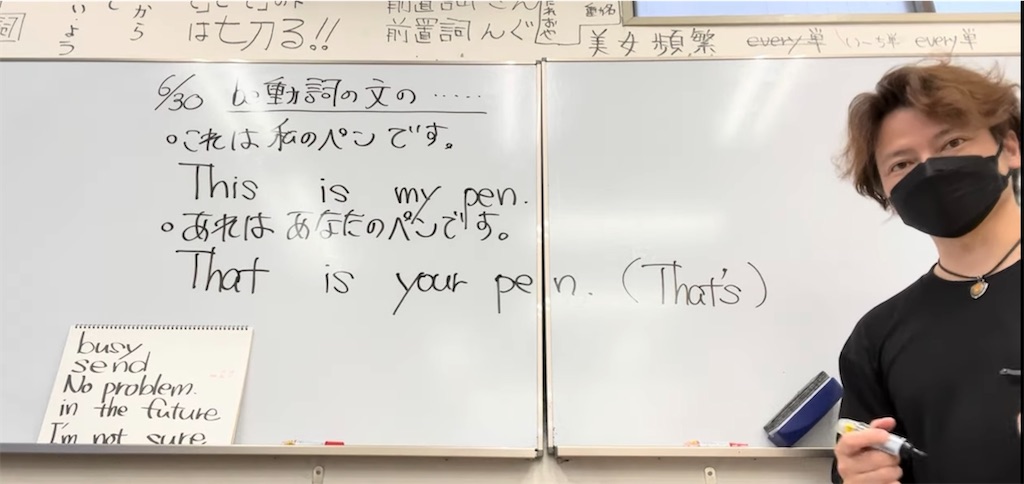 から
は七刀る!!
前置詞 んぐ
美女頻繁 every単 い〜ち単 every単
6/30 be動詞の文の……
。これは私のペンです。
This is my pen.
。あれはあなたのペンです。
That is your pen. (That's)
busy
send
No problem.
in the future
I'm not sure.